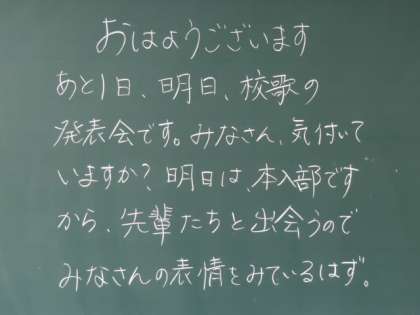 おはようございます
あと1日、明日、校歌の
発表会です。みなさん、気付いて
いますか?明日は、本入部です
から、先輩たちと出会うので
みなさんの表情をみているはず。